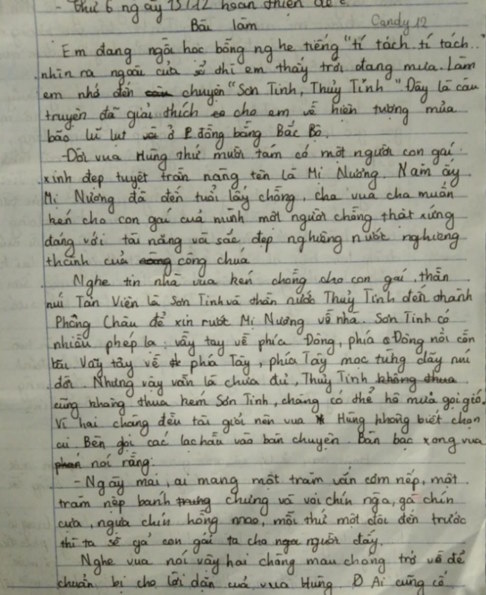 - thứ 6 ngày 13/12 hoàn thiện đề
Bài làm
Candy 12
Em đang ngồi học bỗng nghe tiếng "tí tách.. tí tách.."
nhìn ra ngoài cửa sổ thì em thấy trời đang mưa. Làm
em nhớ đến chuyện "Sơn Tinh, Thủy Tinh" Đây là câu
truyện đã giải thích cho em về hiện tượng mùa
bão lũ lụt ở đồng bằng Bắc Bộ.
- Đời vua Hùng thứ mười tám có một người con gái
xinh đẹp tuyệt trần nàng tên là Mị Nương. Năm ấy
Mị Nương đã đến tuổi lấy chồng, cha vua cha muốn
kén cho con gái của mình một người chồng thật xứng
đáng với tài năng và sắc đẹp nghiêng nước nghiêng
thành của công chúa.
Nghe tin nhà vua kén chồng cho con gái, thần
núi Tản Viên là Sơn Tinh và thần nước Thủy Tinh đến thành
Phong Châu để xin rước Mị Nương về nhà. Sơn Tinh có
nhiều phép lạ: vẫy tay về phía Đông, phía Đông nổi cồn
bãi Vẫy tây về phía Tây, phía Tây mọc từng dãy núi
đồi. Nhưng vậy vẫn là chưa đủ, Thủy Tinh
cũng không thua kém Sơn Tinh, chàng có thể hô mưa gọi gió.
Vì hai chàng đều tài giỏi nên vua Hùng không biết chọn
ai Bèn gọi các lạc hầu vào bàn chuyện Bàn bạc xong vua
nói rằng:
- Ngày mai, ai mang một trăm ván cơm nếp, một
trăm nệp bánh chưng và voi chín ngà, gà chín
cựa, ngựa chín hồng mao, mỗi thứ một đôi đến trước
thì ta sẽ gả con gái ta cho người đấy.
Nghe vua nói vậy hai chàng mau chóng trở về để
chuẩn bị cho lời dặn của vua Hùng Ai cũng cố